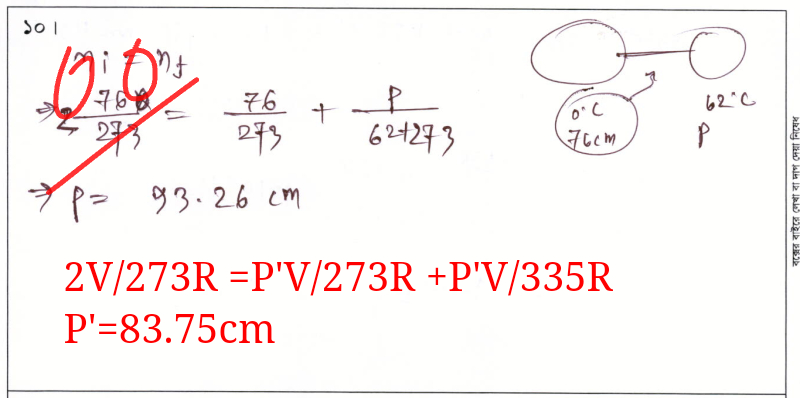 ১০।
ni = nf
⇒ 2 76/273 = 76/273 + P/62+273
⇒ P = 93.26 cm
0°C
76cm
62°C
P
2V/273R =P'V/273R +P'V/335R
P'=83.75cm
বক্সের বাইরে লেখা বা দাগ দেয়া নিষেধ